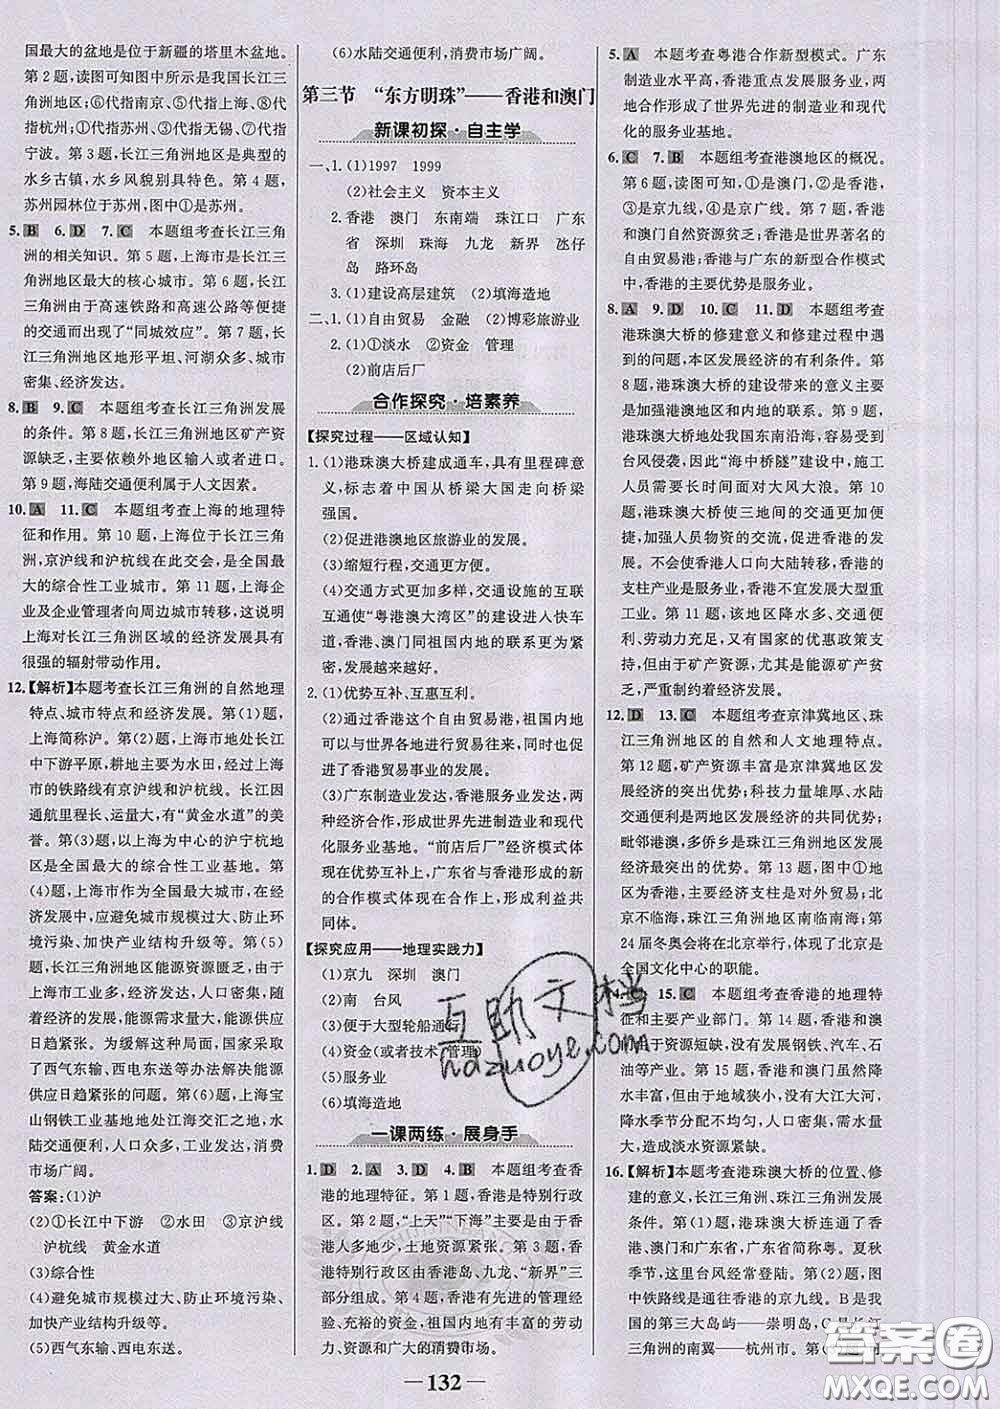 国最大的盆地是位于新疆的塔里木盆地。
第2题,读图可知图中所示是我国长江三
角洲地区;⑥代指南京、⑤代指上海、⑧代
指杭州;①代指苏州、③代指无锡、⑦代指
宁波。第3题,长江三角洲地区是典型的
水乡古镇,水乡风貌别具特色。第4题,
苏州园林位于苏州,图中①是苏州。
5. B 6. D 7. C 本题组考查长江三角
洲的相关知识。第5题,上海市是长江三
角洲地区最大的核心城市。第6题,长江
三角洲由于高速铁路和高速公路等便捷
的交通而出现了“同城效应”。第7题,
长江三角洲地区地形平坦、河湖众多、城市
密集、经济发达。
8. B 9. C 本题组考查长江三角洲发展
的条件。第8题,长江三角洲地区矿产资
源缺乏,主要依赖外地区输入或者进口。
第9题,海陆交通便利属于人文因素。
10. A 11. C 本题组考查上海的地理特
征和作用。第10题,上海位于长江三角
洲,京沪线和沪杭线在此交会,是全国最
大的综合性工业城市。第11题,上海企
业及企业管理者向周边城市转移,这说明
上海对长江三角洲区域的经济发展具有
很强的辐射带动作用。
12.【解析】本题考查长江三角洲的自然地理
特点、城市特点和经济发展。第(1)题,
上海简称沪。第(2)题,上海市地处长江
中下游平原,耕地主要为水田,经过上海
市的铁路线有京沪线和沪杭线。长江因
通航里程长、运量大,有“黄金水道”的美
誉。第(3)题,以上海为中心的沪宁杭地
区是全国最大的综合性工业基地。第
(4)题,上海市作为全国最大的城市,在经
济发展中,应避免城市规模过大、防止环
境污染、加快产业结构升级等。第(5)
题,长江三角洲地区能源资源匮乏,由于
上海市工业多,经济发达,人口密集,能
源需求量大,能源供应日趋紧张。随着经
济发展,人口密集,能源需求量大,能源供应
日趋紧张。为缓解这种局面,国家采取
了西气东输、西电东送等办法解决能源
供应日趋紧张的问题。第(6)题,上海宝
山钢铁工业基地地处长江海交汇之地,水
陆交通便利,人口众多,工业密集,消费
市场广阔。
答案:(1)沪
(2)①长江中下游 ②水田 ③京沪线
沪杭线 黄金水道
(3)综合性
(4)避免城市规模过大、防止环境污染、
加快产业结构升级等。
(5)西气东输、西电东送。
(6)水陆交通便利,消费市场广阔。
第三节 “东方明珠”——香港和澳门
新课初探·自主学
一、1.(1)1997 1999
(2)社会主义 资本主义
2.香港 澳门 东南端 珠江口 广东
省 深圳 珠海 九龙 新界 氹仔
岛 路环岛
3.(1)建设高层建筑 (2)填海造地
二、1.(1)自由贸易 金融 (2)博彩旅游业
2.(1)①淡水 ②资金 管理
(2)前店后厂
合作探究·培素养
【探究过程——区域认知】
1.(1)港珠澳大桥建成通车,具有里程碑意
义,标志着中国从桥梁大国走向桥梁
强国。
(2)促进港澳地区旅游业的发展。
(3)缩短行程,交通更方便。
(4)交通方式更加多样,交通设施的互联
互通使“粤港澳大湾区”的建设进入快车
道,香港、澳门同祖国内地的联系更为紧
密,发展越来越好。
2.(1)优势互补、互惠互利。
(2)通过香港这个自由贸易港,祖国内地
可以与世界各地进行贸易往来,同时也促
进了香港贸易事业的发展。
(3)广东制造业发达,香港服务业发达,两
种经济合作,形成世界先进制造业和现代
化服务业基地。“前店后厂”经济模式体
现优势互补,广东省与香港形成的新
的合作模式体现在合作上,形成利益共
同体。
【探究应用——地理实践力】
(1)京九 深圳 澳门
(2)南 台风
(3)便于大型轮船通行
(4)资金(或者技术、管理)
(5)服务业
(6)填海造地
一课两练·展身手
1. D 2. A 3. D 4. B 本题组考查香
港的地理特征。第1题,香港是特别行政
区。第2题,“上天”“下海”主要是因为香
港人多地少,土地资源紧张。第3题,香
港特别行政区由香港岛、九龙、“新界”三
部分组成。第4题,香港有先进的管理经
验、充裕的资金,祖国内地有丰富的劳动力
与广大的消费市场。
5. A 本题考查粤港合作新型模式。广东
制造业水平高,香港重点发展服务业,两
地合作形成了世界先进的制造业和现代
化的服务业基地。
6. C 7. B 本题组考查港澳地区的概况。
第6题,读图可知,①是澳门,②是香港,
③是京九线,④是京广线。第7题,香港
和澳门自然资源贫乏;香港是世界著名的
自由贸易港;香港与广东的新型合作模式
中,香港的主要优势是服务业。
8. A 9. D 10. C 11. D 本题组考查
港珠澳大桥的修建意义和修建过程中遇
到的问题,本区发展经济的有利条件。第
8题,港珠澳大桥的建设带来的意义主要
是加强港澳地区和内地的联系。第9题,
本地处我国东南沿海,容易受到
台风侵袭,因此“海中桥隧”建设中,施工
人员的安全面对的是大风大浪。第10
题,港珠澳大桥使三地间的交流大大增多,
加强人员物资的交流,促进香港的发展,
不会使香港人口向大陆转移;香港的
支柱产业是服务业,香港不宜发展大型重
工业。第11题,该地区降水多、交通便
利、劳动力充足,又有国家的优惠政策支
持,但由于矿产资源,尤其是能源矿产贫
乏,严重制约着经济发展。
12. D 13. C 本题组考查京津冀地区、珠
江三角洲地区的自然和人文地理特点。
第12题,矿产资源丰富是京津冀地区发
展经济的突出优势;科技力量雄厚、水陆
交通便利是两地区发展经济的共同优势;
毗邻港澳、多侨乡是珠江三角洲地区发展
经济的突出优势。第13题,图中①地区
为香港,主要经济支柱是对外贸易;北京不
临海,珠江三角洲地区南临南海;第
24届冬奥会将在北京举行,体现了北京是
全国文化中心的职能。
14. C 15. C 本题组考查香港的地理特
征和主要产业部门。第14题,香港和澳
门由于资源短缺,没有发展钢铁、汽车、石
油等产业。第15题,香港和澳门虽然降
水丰富,但由于地域狭小,没有大江大河,
降水季节分配不均匀,人口多,需水量
大,造成淡水资源紧缺。
16.【解析】本题考查港珠澳大桥的位置、修
建的意义,长江三角洲、珠江三角洲的发展
条件。第(1)题,港珠澳大桥连接香港、
澳门和广东省,广东省简称粤。夏秋
季节,这里台风经常登陆。第(2)题,A
图中铁路线是通往香港的京九线。B是我国
的第三大岛屿——崇明岛,C是长江三
角洲的南翼——杭州市。第(3)题,河
— 132 —
互助文档
hazuoye.com
答案圈
MXQE.COM